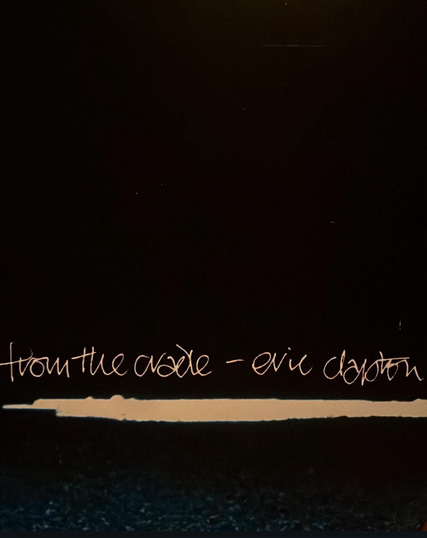 from the cradle – eric clapton